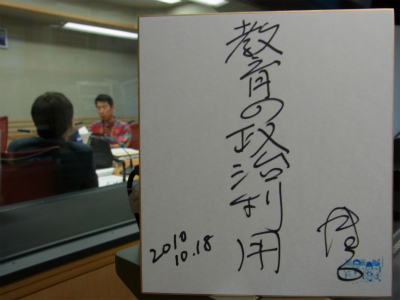 教育の政治利用
2010
10.18